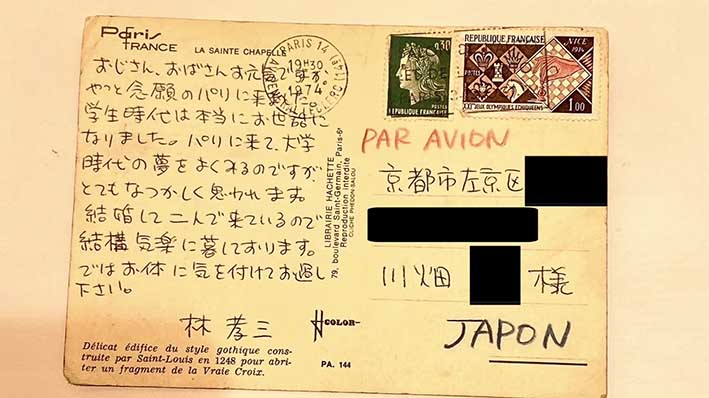 Paris
FRANCE
LA SAINTE CHAPELLE
おじさん、おばさんお元気ですか。
やっと念願のパリに来ました。
学生時代は本当にお世話に
なりました。パリに来て、大学
時代の夢をよくみるのですが
とてもなつかしく思われます。
結婚して二人で来ているので
結構気楽に暮しております。
ではお体に気を付けてお過し
下さい。
林 孝三
COLOR
Délicat édifice du style gothique cons-
truite par Saint-Louis en 1248 pour abri-
ter un fragment de la Vraie Croix.
PA. 144
LIBRAIRIE HACHETTE
79, boulevard Saint-Germain, Paris-6e
Reproduction interdite
CLICHÉ PHEDON-SALOU
PARIS 14
19H30
1974
0,30
POSTES
RÉPUBLIQUE FRANÇAISE
RÉPUBLIQUE FRANÇAISE
NICE
1974
POSTES
XXIes JEUX OLYMPIQUES ÉCHIQUÉENS
1,00
PAR AVION
京都市左京区
川畑 様
JAPON